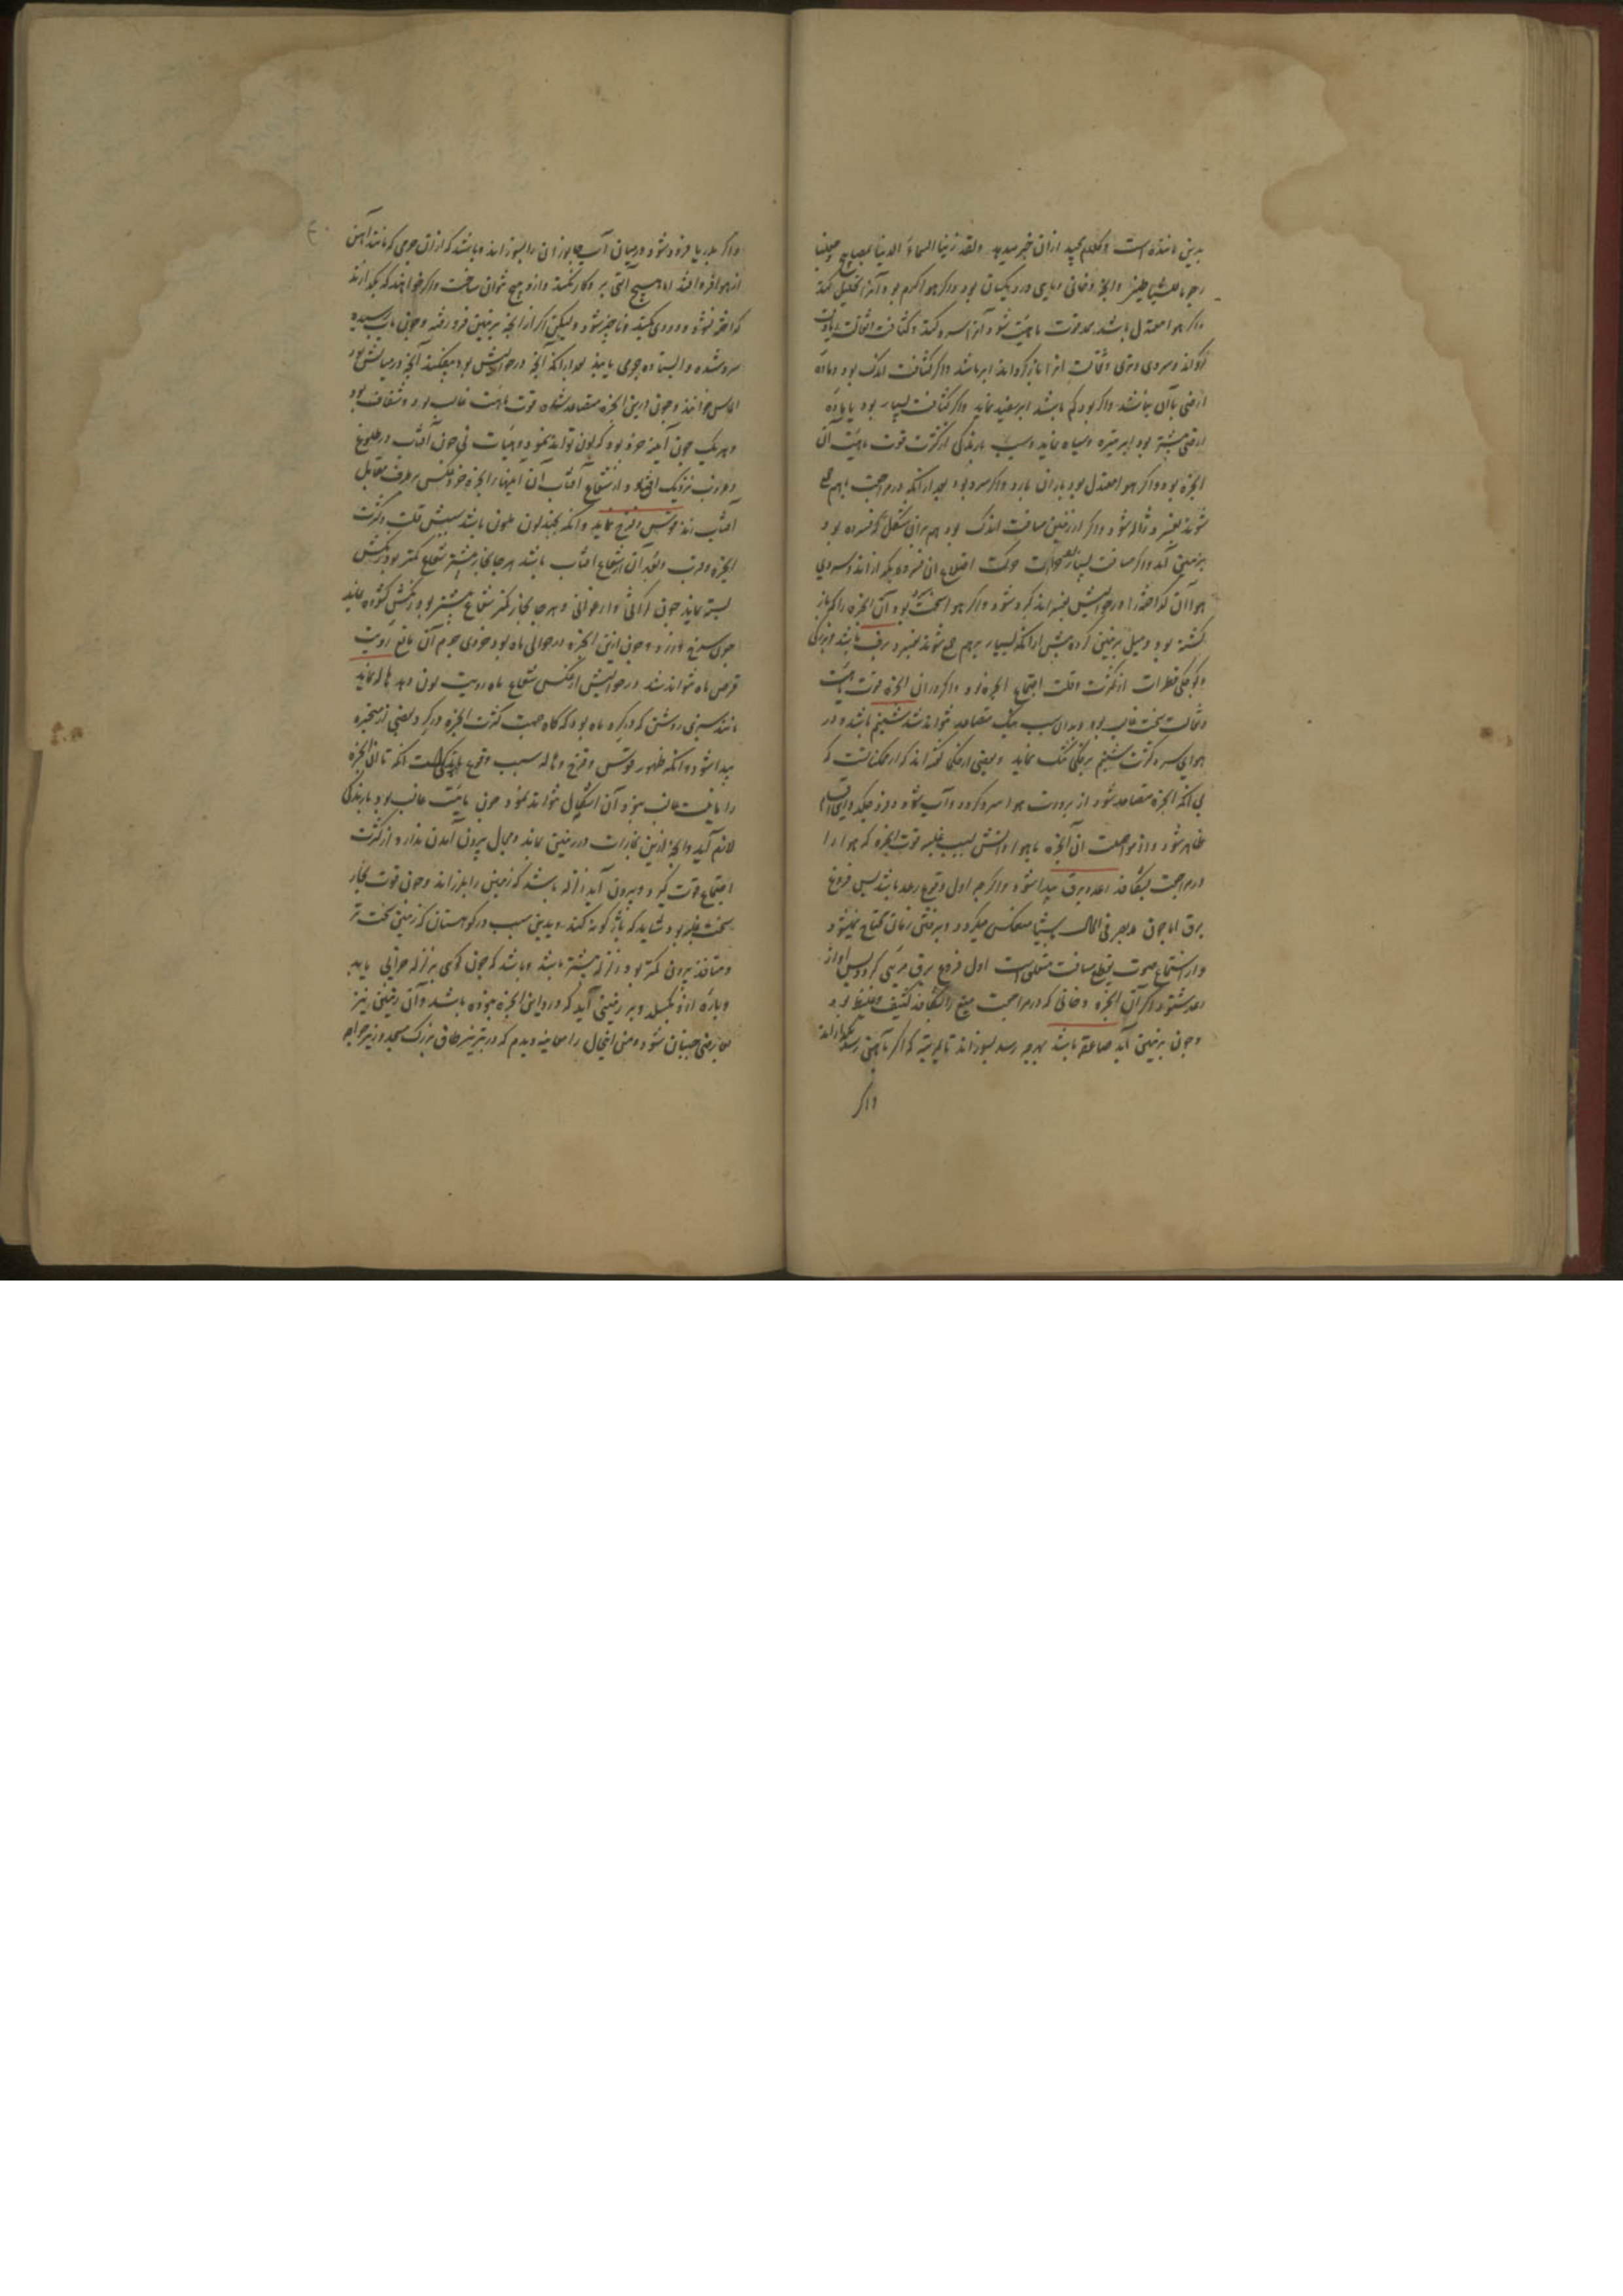 بدین مانند است و کلام مجید ازان خبر میدهد ولقد زینا السماء الدنیا بمصابیح وجعلنا
رجوما للشیاطین وابخره دخانی و مایی در و یکسان بود و اگر هوا گرم بود آنرا تحلیل کند
و اگر هوا معتدل باشد قوت مائیت شود آنرا سرد کند و کثافت و ثقالت
و سردی و تری و ثقالت آنرا باز گرداند ابر باشد و اگر کثافت اندک بود و ماده
ارضی با آن نباشد و اگر بود کم باشد ابر سفید نماید و اگر کثافت بسیار بود یا ماده
ارضی بیشتر بود ابر تیره و سیاه نماید و سبب بارندگی از کثرت قوت مائیت آن
ابخره بود و اگر هوا معتدل بود باران بارد و اگر سرد بود بعد ازانکه در مراجعت بهم جمع
شوند بفسرد و ژاله شود و اگر از زمین مسافت اندک بود هم بران شکل که فسرده بود
بر زمین آید و اگر مسافت بسیار بود حرکت اضلاع آن فسرده بگدازاند و سردی
هوا آن گداخته را در حوالیش بفسراند گرد شود و اگر هوا سخت بود و آن ابخره را که باز
گشته بود و میل بزمین کرده پیش ازانکه بسیار برهم جمع شوند بفسرد برف باشد و بزرگی
و کوچکی قطرات از کثرت و قلت اجتماع ابخره بود و اگر دران ابخره قوت مائیت
و ثقالت سخت غالب بود و بدان سبب نیک متصاعد نتواند شد شبنم باشد و در
هوای سرد کثرت شبنم نماید و بعضی گفته اند که
بی آنکه ابخره متصاعد شود از برودت هوا سرد گردد و آب شود و فرو چکد و این
ظاهر شود و از مواصلت آن ابخره با هوا و آتش بسبب غلبه قوت ابخره که هوا را
در مراجعت بشکافد رعد و برق پیدا شود و اگر چه اول وقوع رعد باشد پس فروغ
برق اما چون بصر فی الحال منعکس میگردد و بر فتن زمان محتاج نمیشود
و استماع صوت بقطع مسافت متعلق است اول فروغ برق مرئی گردد پس آواز
رعد شنود و اگر آن ابخره دخانی که در مراجعت میغ را بشکافد کثیف و غلیظ بود
و چون بزمین آید صاعقه باشد بهرچه رسد بسوزاند تا بمرتبه که اگر بآهن رسد بگدازاند
و اگر
و اگر بدریا فرود شود و در میان آب جانوران را بسوزاند و باشد که ازان جرمی که مانند آهن
از هوا فرو افتد اما هیچ آلتی بر و کار نکند و ازو هیچ نتوان ساخت و اگر خواهند که بگدازند
گداخته نشود و دودی بکند و ناچیز شود و لیکن اگر از ابخره بزمین فرو رفته و چون بآب رسیده
سرد شده و ایستاده جرمی یابند بعد ازانکه ابخره در حوالیش بود بیفکند آنچه در میانش بود
الماس خوانند و چون درین ابخره متصاعد شده قوت مائیت غالب بود و شفاف بود
و هر یک چون آینه خرد بود که لون تواند نمود و هیأت نی چون آفتاب در طلوع
و غروب نزدیک افق بود و از شعاع آفتاب آن آینهای ابخره خرد عکس بر طرف مقابل
آفتاب زند قوس و قزح نماید و آنکه بچند لون ملون باشد سببش قلت و کثرت
ابخره و قرب و بعد آن از شعاع آفتاب باشد هر جا بخار بیشتر شعاع کمتر بود رنگش
بسته نماید چون کراثی و ارغوانی و هر جا بخار کمتر شعاع بیشتر بود رنگش گشوده نماید
چون سرخ و زرد و چون ازین ابخره در حوالی ماه بود خردی جرم آن مانع رؤیت
قرص ماه نتواند شد در حوالیش از عکس شعاع ماه رویت لون دهد هاله نماید
مانند سپری روشن که در گرد ماه بود و گاه گاه بجهت کثرت ابخره در گرد بعضی از متحیره
پیدا شود و آنکه ظهور قوس و قزح و هاله سبب وقوع بارندگی است آنکه تا آن ابخره
را مائیت غالب نبود آن اشکال نتواند نمود چون مائیت غالب بود بارندگی
لازم آید و ابخره ازین بخارات در زمین بماند و مجال بیرون آمدن ندارد و از کثرت
اجتماع قوت گیرد و بیرون آید زلزله باشد که زمین را بلرزاند و چون قوت بخار
سخت غلبه بود شاید که باژگونه کند و بدین سبب در کوهستان که زمین سخت تر
و منافذ بیرون کمتر بود زلزله بیشتر باشد و باشد که چون کوهی بزلزله خرابی یابد
و پاره ازو بگسلد و بر زمینی آید که در و این ابخره بوده باشد و آن زمین نیز
جنبان شود و من این حال را معاینه دیدم که در تبریز طاق بزرگ مسجد وزیر خواجه